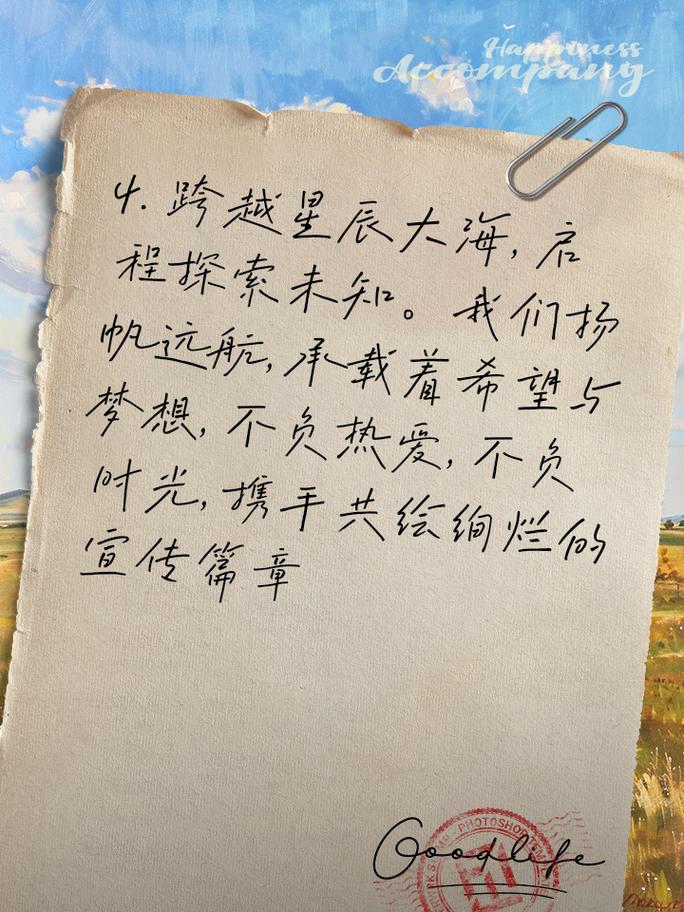 Happiness
Accompany
4. 跨越星辰大海，启
程探索未知。我们扬
帆远航，承载着希望与
梦想，不负热爱，不负
时光，携手共绘绚烂的
宣传篇章
PHOTOSHOP
Goodlife